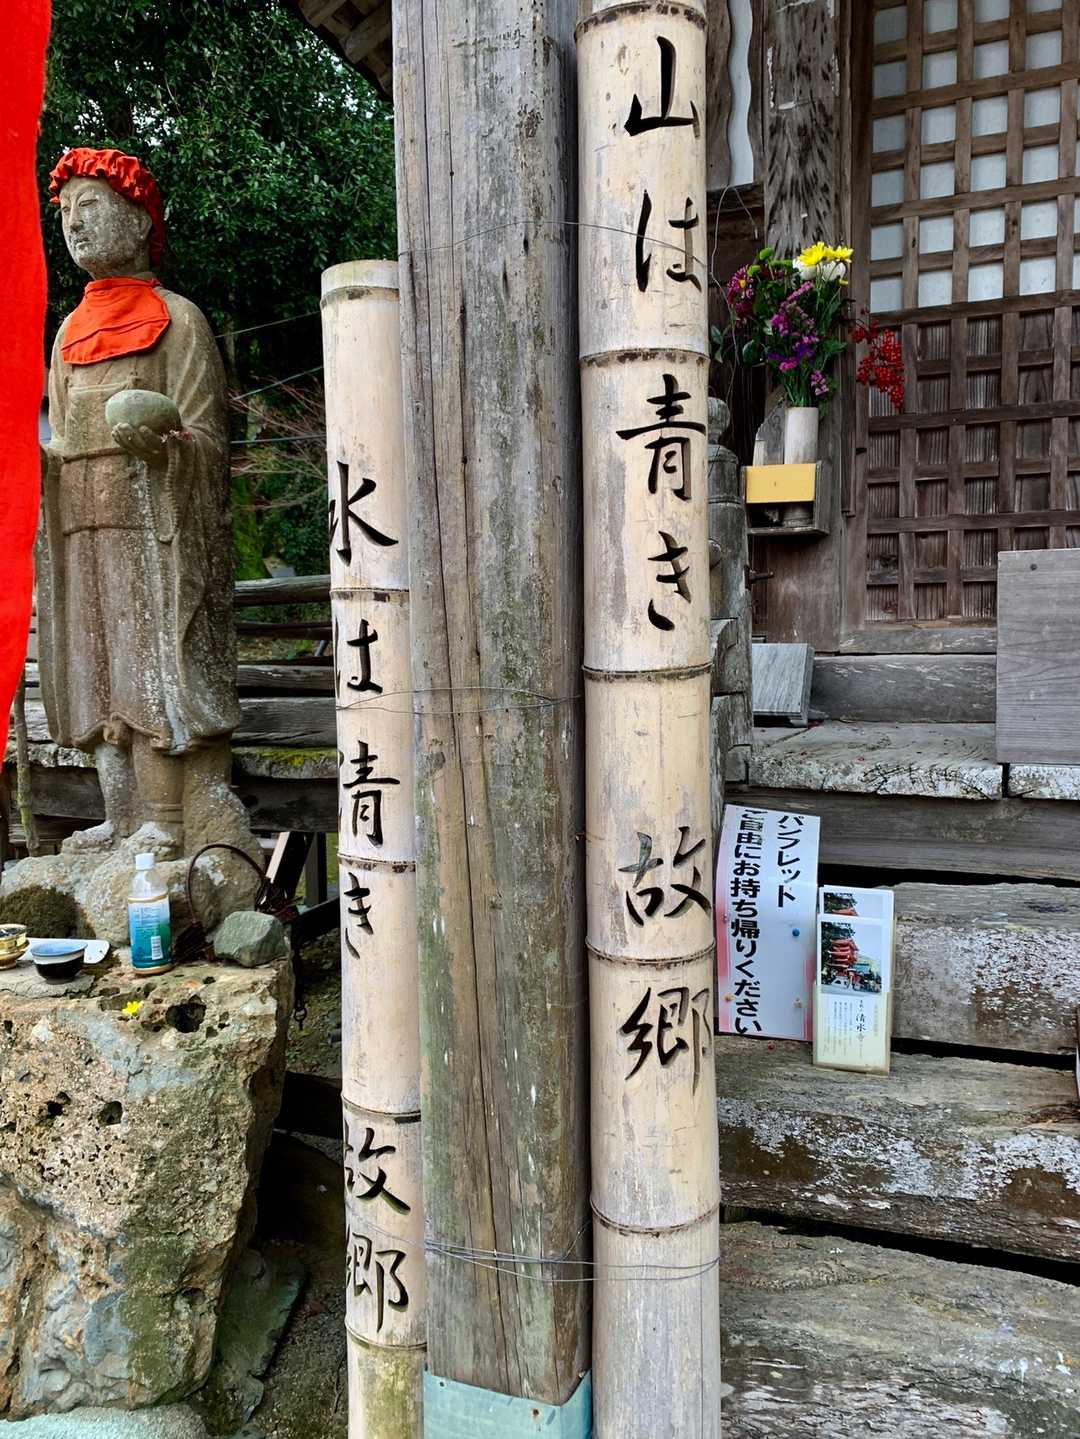 山は青き故郷
水は清き故郷
パンフレット
ご自由にお持ち帰りください
清水寺